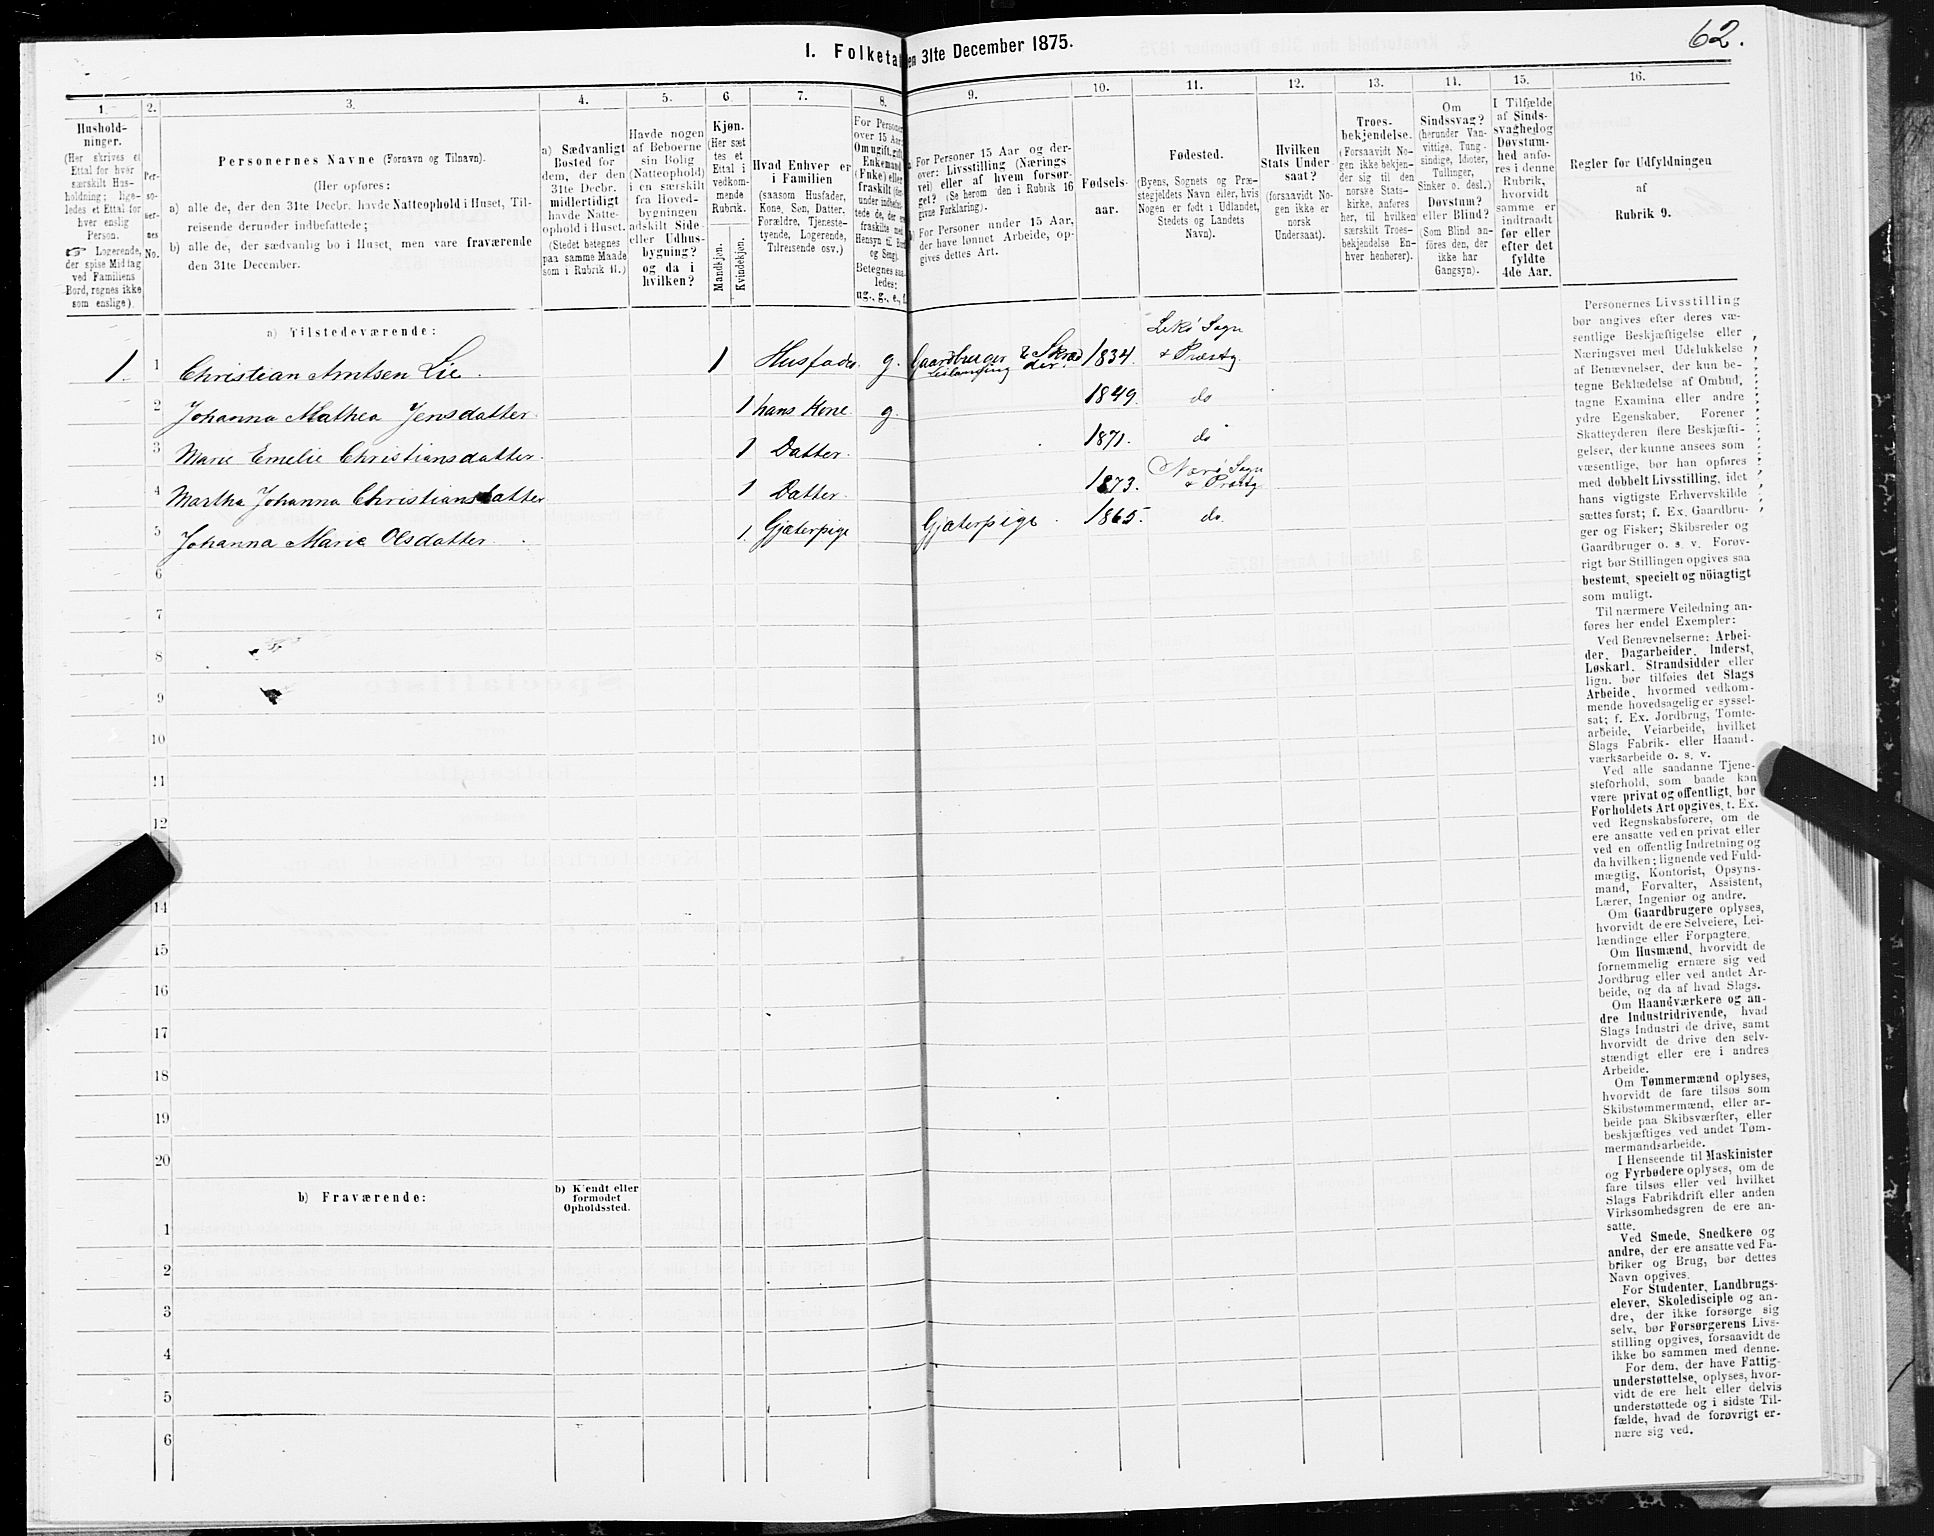 62.
I. Folketal den 31te December 1875.
1.
2.
3.
4.
5.
6
7.
8.
9.
10.
11.
12.
13.
14.
15.
16.
Hushold-
ninger.
(Her skrives et
Ettal for hver
særskilt Hus-
holdning; lige-
ledes et Ettal for
hver enslig
Person.
☞ Logerende,
der spise Middag
ved Familiens
Bord, regnes ikke
som enslige).
Per-
so-
ner-
nes
No.
Personernes Navne (Fornavn og Tilnavn).
(Her opføres:
a) alle de, der den 31te Decbr. havde Natteophold i Huset, Til-
reisende derunder indbefattede;
b) alle de, der sædvanlig bo i Huset, men vare fraværende
den 31te December.
a) Sædvanligt
Bosted for
dem, der den
31te Decbr.
midlertidigt
havde Natte-
ophold i Huset.
(Stedet betegnes
paa samme Maade
som i Rubrik 11.)
Havde nogen
af Beboerne
sin Bolig
(Natteophold)
i en særskilt
fra Hoved-
bygningen
adskilt Side-
eller Udhus-
bygning?
og da i
hvilken?
Kjøn.
(Her sæt
tes et
Ettal i
vedkom-
mende
Rubrik.
Mandkjøn.
Kvindekjøn.
Hvad Enhver er
i Familien
(saasom Husfader,
Kone, Søn, Datter,
Forældre, Tjeneste-
tyende, Logerende,
Tilreisende osv.)
For Personer
over 15 Aar:
Om ugift, gift,
Enkemand
(Enke) eller
fraskilt
Betegnes saa-
ledes:
ug., g., e., f.
For Personer 15 Aar og der-
over: Livsstilling (Nærings
vei) eller af hvem forsør-
get? (Se herom den i Rubrik 16
givne Forklaring).
For Personer under 15 Aar,
der have lønnet Arbeide, op-
gives dettes Art.
Fødsels-
aar.
Fødested.
(Byens, Sognets og Præ-
stegjeldets Navn eller, hvis
Nogen er født i Udlandet,
Stedets og Landets
Navn).
Hvilken
Stats Under-
saat?
(forsaavidt No-
gen ikke er
norsk
Undersaat).
Troes-
bekjendelse.
(Forsaavidt No-
gen ikke bekjen-
der sig til den
norske Stats-
kirke, anføres
her, til hvilken
særskilt Troes-
bekjendelse En-
hver henhører).
Om
Sindssvag?
(herunder Van-
vittige, Tung-
sindige, Idioter,
Tullinger,
Sinker o. desl.)
Døvstum?
eller Blind?
(Som Blind an-
føres den, der
ikke har
Gangsyn).
I Tilfælde
af Sinds-
svaghed og
Døvstum-
hed anfø-
res i denne
Rubrik,
hvorvidt
samme er
indtraadt
før eller
efter det
fyldte
4de Aar.
Regler for Udfyldningen
af
Rubrik 9.
a) Tilstedeværende:
1. 1 Christian Arntsen Lie. 1 Husfader g. Gaardbruger & Skræd 1834. Lekø Sogn
Leilænding der. & Præstg
2 Johanna Mathea Jensdatter. 1 hans Kone g. 1849. do
3 Marie Emelie Christiansdatter. 1 Datter. 1871. do
4 Martha Johanna Christiansdatter 1 Datter. 1873. Nærø Sogn
& Præstg
5 Johanna Marie Olsdatter. 1. Gjæterpige Gjæterpige. 1865. do.
6
7
8
9
10
11
12
14
15
16
17
18
19
20
b) Fraværende:
b) Kjendt eller
formodet
Opholdssted.
1
2
3
4
5
6
Personernes Livsstilling
bør angives efter deres væ-
sentlige Beskjæftigelse eller
Næringsvei med Udelukkelse
af Benævnelser, der kun be-
tegne Beklædelse af Ombud,
tagne Examina eller andre
ydre Egenskaber. Forener
Skatteyderen flere Beskjæfti-
gelser, der kunne ansees som
væsentlige, bør han opføres
med dobbelt Livsstilling, idet
hans vigtigste Erhvervskilde
sættes først; f. Ex. Gaardbru-
ger og Fisker; Skibsreder og
Gaardbruger o. s. v. Forøv-
rigt bør Stillingen opgives saa
bestemt, specielt og nöiagtigt
som muligt.
Til nærmere Veiledning an-
føres her endel Exempler:
Ved Benævnelserne: Arbei-
der, Dagarbeider, Inderst,
Løskarl, Strandsidder eller
lign. bør tilføies det Slags
Arbeide, hvormed vedkom-
mende hovedsagelig er syssel-
sat; f. Ex. Jordbrug, Tomte-
arbeide, Veiarbeide, hvilket
Slags Fabrik- eller Haand-
værksarbeide o. s. v.
Ved alle saadanne Tjene-
steforhold, som baade kan
være privat og offentligt, bør
Forholdets Art opgives, t. Ex.
ved Regnskabsførere, om de
ere ansatte ved en privat eller
ved en offentlig Indretning og
da hvilken; lignende ved Fuld-
mægtig, Kontorist, Opsyns-
mand, Forvalter, Assistent,
Lærer, Ingeniør og andre.
Om Gaardbrugere oplyses,
hvorvidt de ere Selveiere, Lei-
lændinge eller Forpagtere.
Om Husmænd, hvorvidt de
fornemmelig ernære sig ved
Jordbrug eller ved andet Ar-
beide, og da af hvad Slags.
Om Haandværkere og an-
dre Industridrivende, hvad
Slags Industri de drive, samt
hvorvidt de drive den selv-
stændigt eller ere i andres
Arbeide.
Om Tømmermænd oplyses,
hvorvidt de fare tilsøs som
Skibstømmermænd, eller ar-
beide paa Skibsværfter, eller
beskjæftiges ved andet Tøm-
mermandsarbeide.
I Henseende til Maskinister
og Fyrbødere oplyses, om de
fare tilsøs eller ved hvilket
Slags Fabrikdrift eller anden
Virksomhedsgren de ere an-
satte.
Ved Smede, Snedkere og
andre, der ere ansatte ved Fa-
briker og Brug, bør dettes
Navn opgives.
For Studenter, Landbrugs-
elever, Skoledisciple og an-
dre, der ikke forsørge sig
selv, bør Forsørgerens Livs-
stilling opgives, forsaavidt de
ikke bo sammen med denne.
For dem, der have Fattig-
understøttelse, oplyses, hvor-
vidt de ere helt eller delvis
understøttede og i sidste Til-
fælde, hvad de forøvrigt er-
nære sig ved.